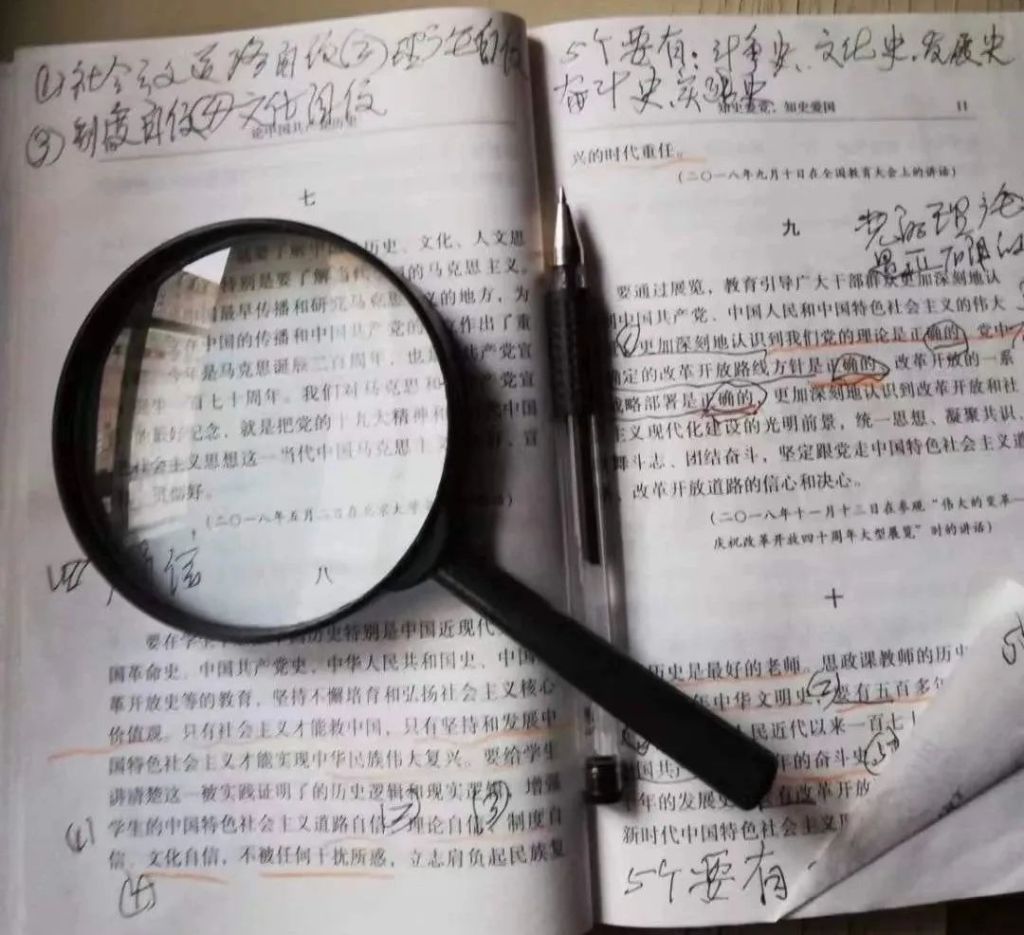 (1)社会主义道路自信(2)理论自信
(3)制度自信(4)文化自信
论中国共产党历史
七
历史、文化、人文思
特别是要了解当代
的马克思主义。
最早传播和研究马克思
义的地方，为
在中国的传播和中国共产党的
立作出了重
今年是马克思诞辰二百周年，也是
共产党宣
百七十周年。我们对马克思和
产党宣
最好纪念，就是把党的十九大精神和
中国
社会主义思想这一当代中国马克思主
宣
贯彻好。
(二〇一八年五月二日在北京大学
自信
八
要在学生
历史特别是中国近现代
国革命史、中国共产党史、中华人民共和国史、中国
革开放史等的教育，坚持不懈培育和弘扬社会主义核心
价值观。只有社会主义才能救中国，只有坚持和发展中
国特色社会主义才能实现中华民族伟大复兴。要给学生
讲清楚这一被实践证明了的历史逻辑和现实逻辑，增强
学生的中国特色社会主义道路自信、理论自信、制度自
信、文化自信，不被任何干扰所惑，立志肩负起民族复
(2)
(3)
(1)
(4)
5个要有：斗争史、文化史、发展史
奋斗史、实践史
知史爱党，知史爱国
11
兴的时代重任。
(二〇一八年九月十日在全国教育大会上的讲话)
九
党的理论
要通过展览，教育引导广大干部群众更加深刻地认
中国共产党、中国人民和中国特色社会主义的伟大
更加深刻地认识到我们党的理论是正确的、党中
确定的改革开放路线方针是正确的、改革开放的一系
战略部署是正确的，更加深刻地认识到改革开放和社
主义现代化建设的光明前景，统一思想、凝聚共识、
舞斗志、团结奋斗，坚定跟党走中国特色社会主义道
、改革开放道路的信心和决心。
(二〇一八年十一月十三日在参观“伟大的变革—
庆祝改革开放四十周年大型展览”时的讲话)
十
历史是最好的老师。思政课教师的历史
年中华文明史，要有五百多年
民近代以来一百七十
国共
年的奋斗史
年的发展史
有改革开放
新时代中国特色社会主义
5个要有